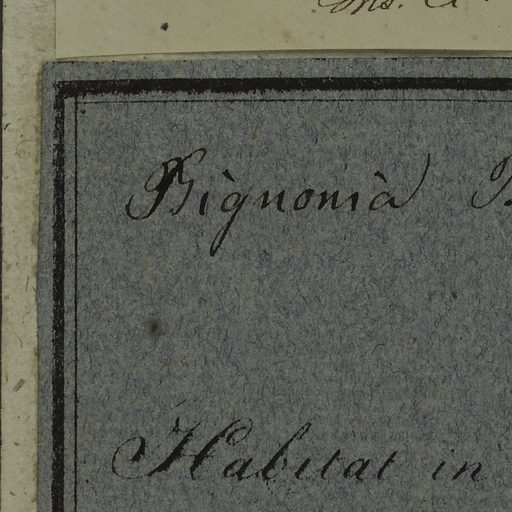 Bignonia
Habitat in